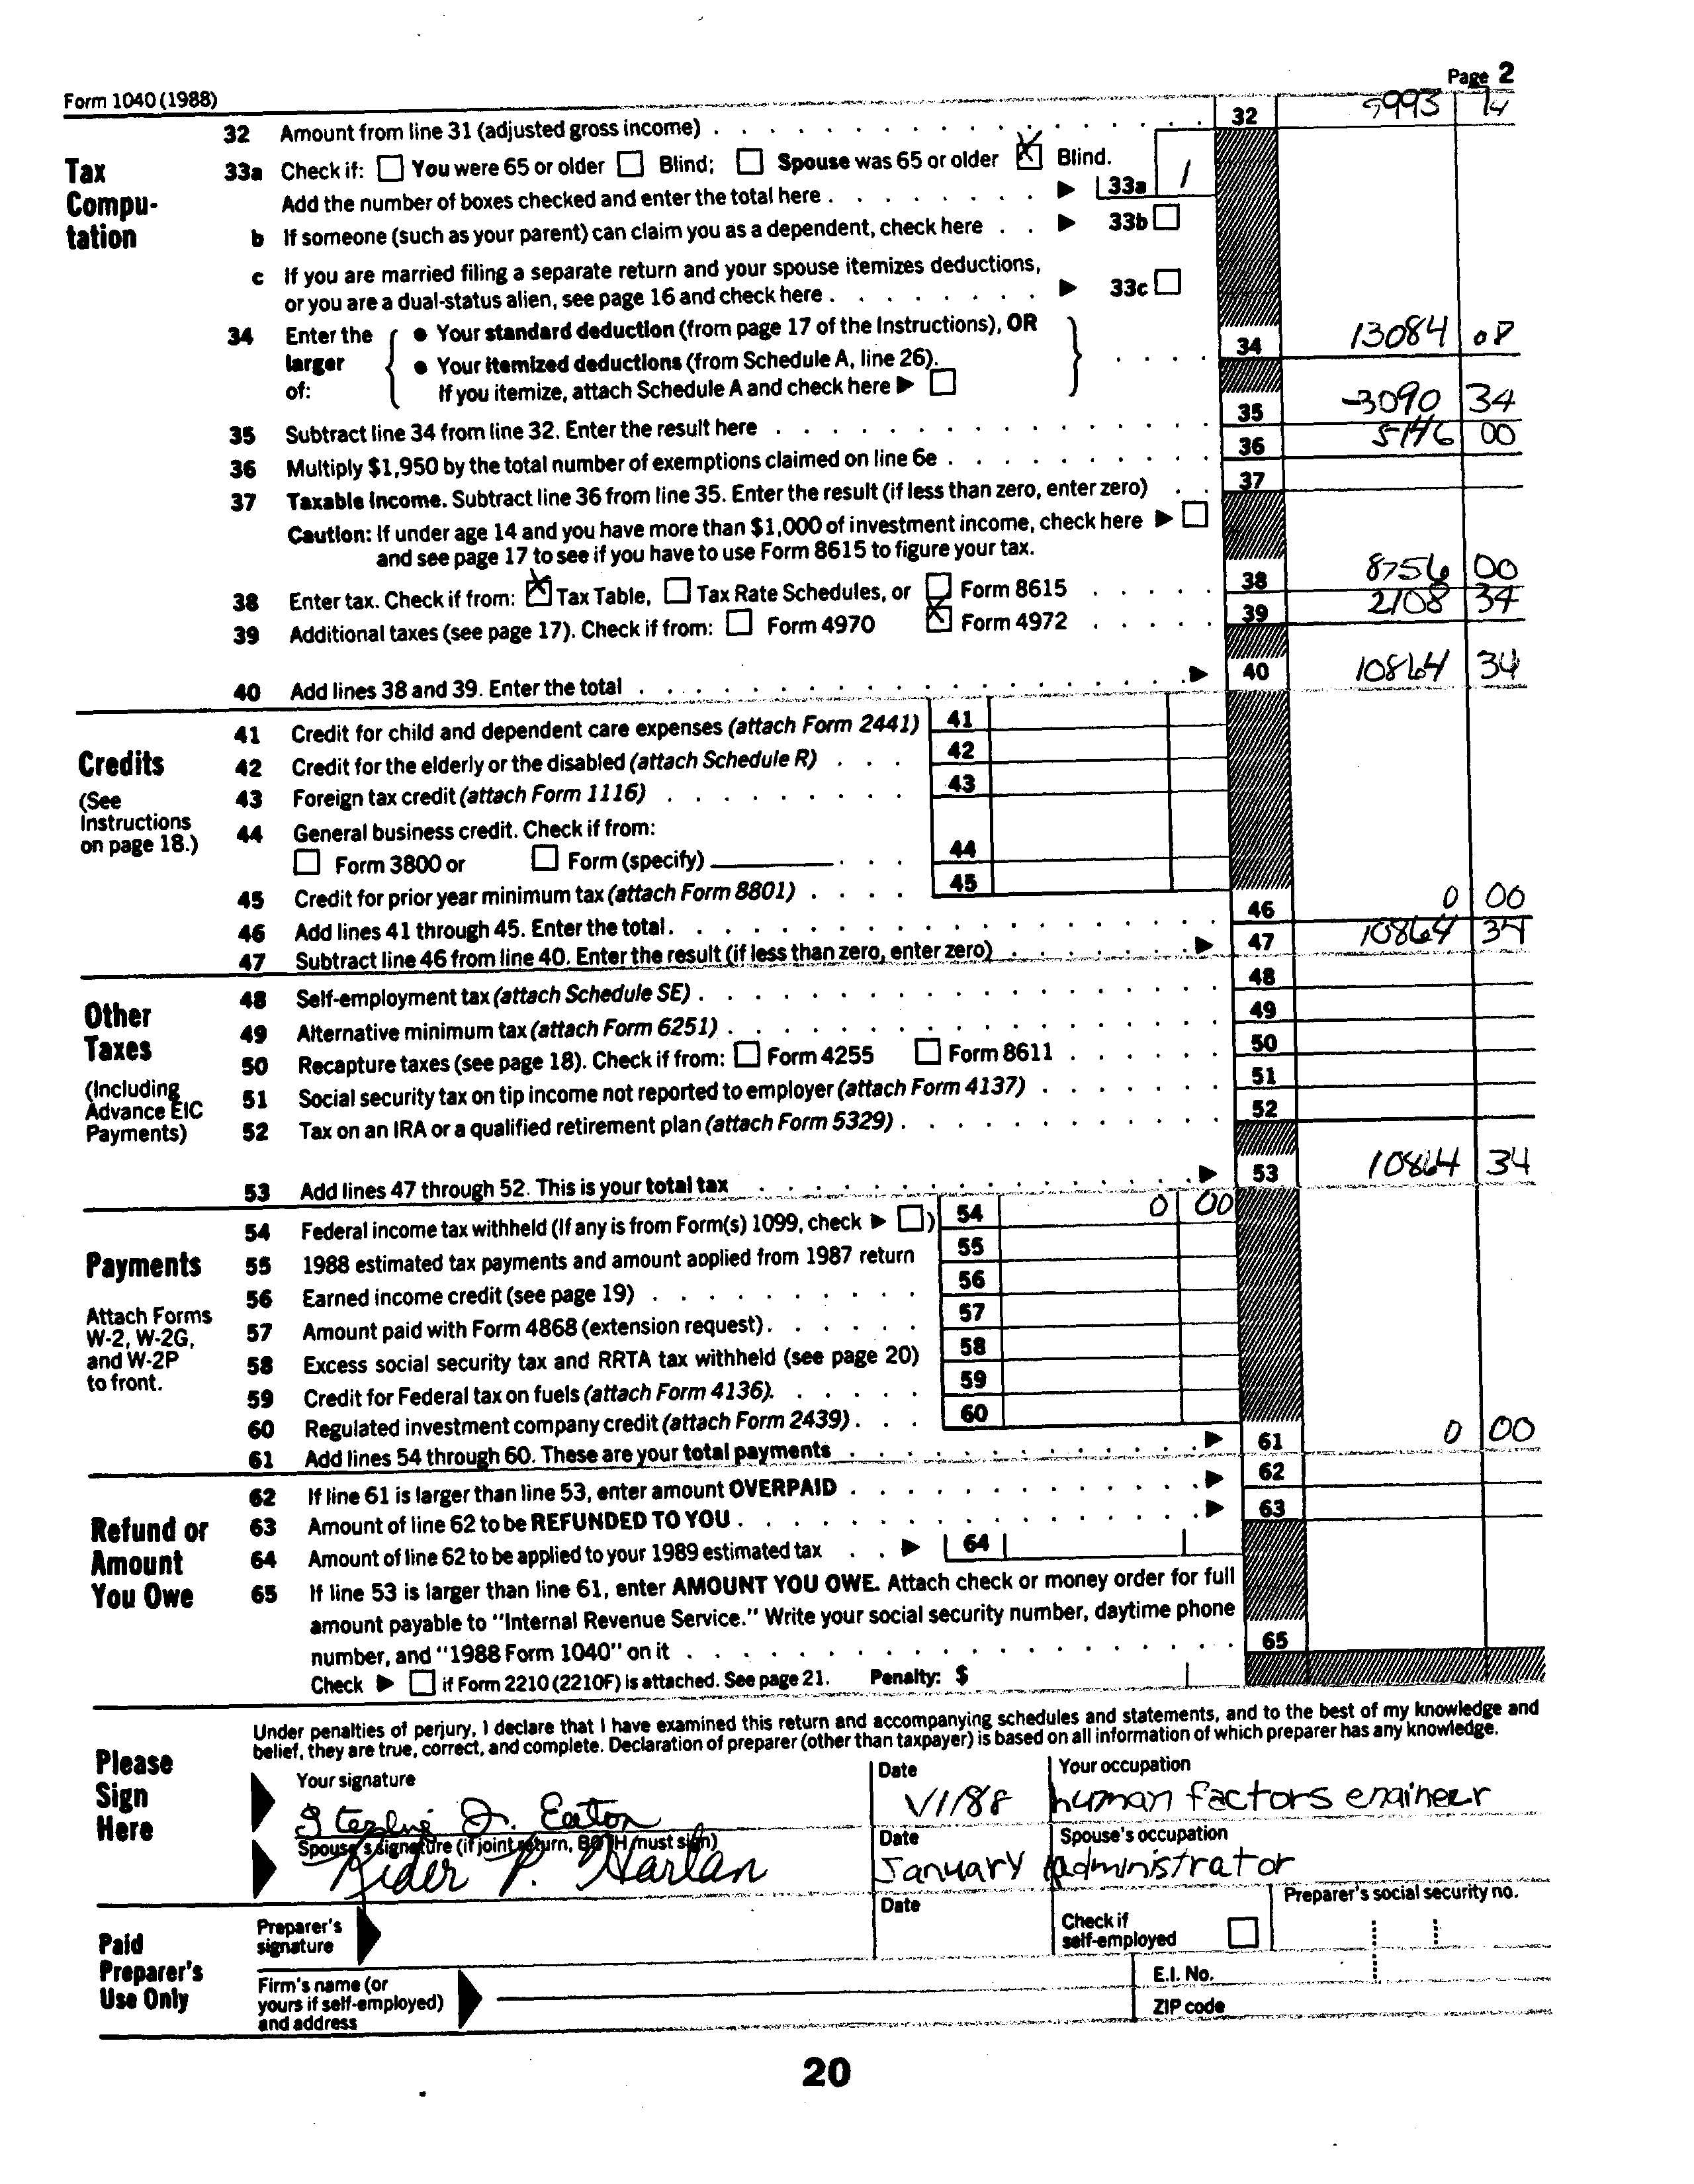 Form 1040 (1988) Page 2
Tax Computation
32 Amount from line 31 (adjusted gross income) 32 9993 74
33a Check if: You were 65 or older Blind; Spouse was 65 or older X Blind.
Add the number of boxes checked and enter the total here 33a 1
b If someone (such as your parent) can claim you as a dependent, check here 33b
c If you are married filing a separate return and your spouse itemizes deductions,
or you are a dual-status alien, see page 16 and check here 33c
34 Enter the larger of:
● Your standard deduction (from page 17 of the Instructions), OR
● Your itemized deductions (from Schedule A, line 26).
If you itemize, attach Schedule A and check here
34 13084 08
35 Subtract line 34 from line 32. Enter the result here 35 -3090 34
36 Multiply $1,950 by the total number of exemptions claimed on line 6e 36 00
37 Taxable income. Subtract line 36 from line 35. Enter the result (if less than zero, enter zero) 37
Caution: If under age 14 and you have more than $1,000 of investment income, check here
and see page 17 to see if you have to use Form 8615 to figure your tax.
38 Enter tax. Check if from: X Tax Table, Tax Rate Schedules, or Form 8615 38 8756 00
39 Additional taxes (see page 17). Check if from: Form 4970 X Form 4972 39 2108 34
40 Add lines 38 and 39. Enter the total 40 10864 34
Credits
(See
Instructions
on page 18.)
41 Credit for child and dependent care expenses (attach Form 2441) 41
42 Credit for the elderly or the disabled (attach Schedule R) 42
43 Foreign tax credit (attach Form 1116) 43
44 General business credit. Check if from:
Form 3800 or Form (specify) 44
45 Credit for prior year minimum tax (attach Form 8801) 45
46 Add lines 41 through 45. Enter the total. 46 0 00
47 Subtract line 46 from line 40. Enter the result (if less than zero, enter zero) 47 10864 34
Other
Taxes
(Including
Advance EIC
Payments)
48 Self-employment tax (attach Schedule SE) 48
49 Alternative minimum tax (attach Form 6251) 49
50 Recapture taxes (see page 18). Check if from: Form 4255 Form 8611 50
51 Social security tax on tip income not reported to employer (attach Form 4137) 51
52 Tax on an IRA or a qualified retirement plan (attach Form 5329) 52
53 Add lines 47 through 52. This is your total tax 53 10864 34
Payments
Attach Forms
W-2, W-2G,
and W-2P
to front.
54 Federal income tax withheld (If any is from Form(s) 1099, check ) 54 0 00
55 1988 estimated tax payments and amount applied from 1987 return 55
56 Earned income credit (see page 19) 56
57 Amount paid with Form 4868 (extension request) 57
58 Excess social security tax and RRTA tax withheld (see page 20) 58
59 Credit for Federal tax on fuels (attach Form 4136). 59
60 Regulated investment company credit (attach Form 2439) 60
61 Add lines 54 through 60. These are your total payments 61 0 00
Refund or
Amount
You Owe
62 If line 61 is larger than line 53, enter amount OVERPAID 62
63 Amount of line 62 to be REFUNDED TO YOU 63
64 Amount of line 62 to be applied to your 1989 estimated tax 64
65 If line 53 is larger than line 61, enter AMOUNT YOU OWE. Attach check or money order for full
amount payable to "Internal Revenue Service." Write your social security number, daytime phone
number, and "1988 Form 1040" on it 65
Check if Form 2210 (2210F) is attached. See page 21. Penalty: $
Please
Sign
Here
Under penalties of perjury, I declare that I have examined this return and accompanying schedules and statements, and to the best of my knowledge and
belief, they are true, correct, and complete. Declaration of preparer (other than taxpayer) is based on all information of which preparer has any knowledge.
Your signature Date Your occupation
Eaton 1/88 human factors engineer
Spouse's signature (if joint return, BOTH must sign) Date Spouse's occupation
Kider P. Harlan January administrator
Paid
Preparer's
Use Only
Preparer's
signature
Date
Check if
self-employed
Preparer's social security no.
Firm's name (or
yours if self-employed)
and address
E.I. No.
ZIP code
20